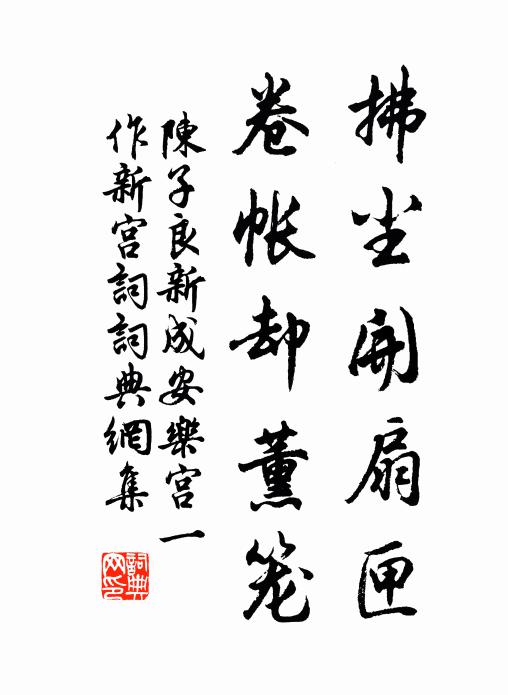 拂尘開扇匣
卷帐却薰笼
陳子良新成安樂宫一
作新宫詞詞典網集
詞典網印